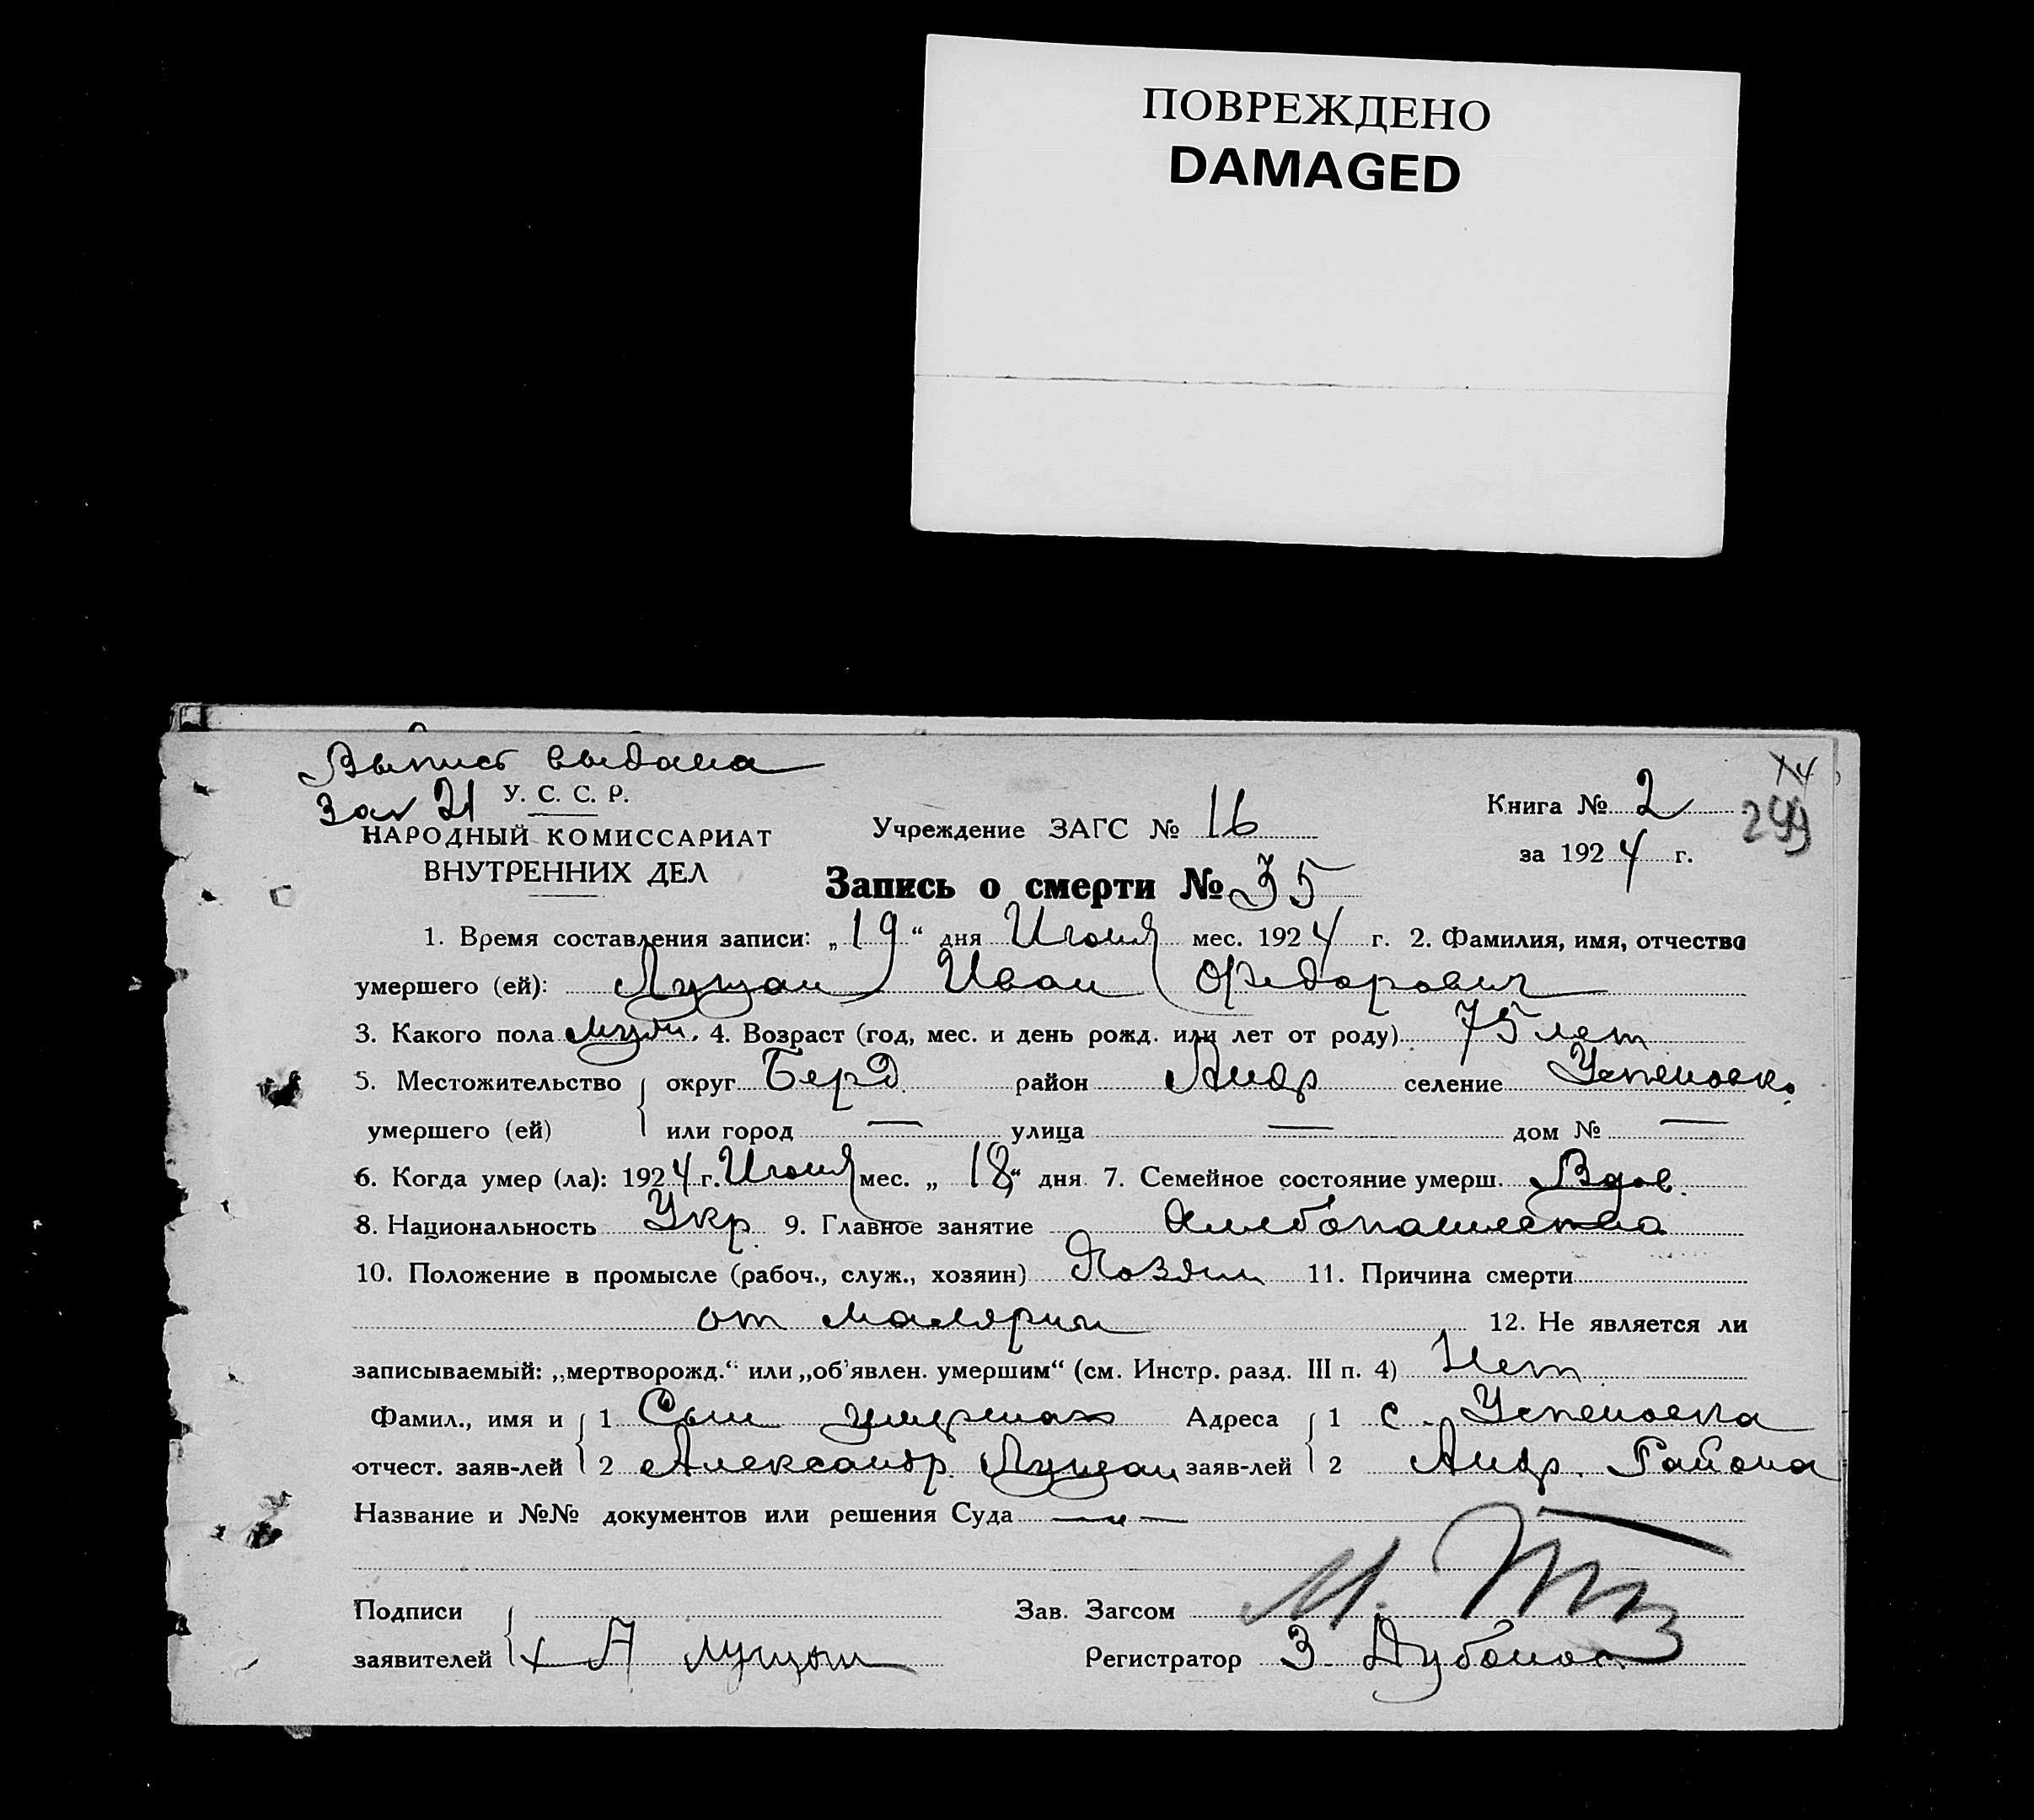 ПОВРЕЖДЕНО
DAMAGED
Выпись выдана
За № 21
У. С. С. Р.
НАРОДНЫЙ КОМИССАРИАТ
ВНУТРЕННИХ ДЕЛ
Учреждение ЗАГС № 16
Книга № 2
за 1924 г.
Запись о смерти № 35
1. Время составления записи: „19“ дня Июня мес. 1924 г. 2. Фамилия, имя, отчество
умершего (ей): Лущан Иван Федорович
3. Какого пола муж. 4. Возраст (год, мес. и день рожд. или лет от роду) 75 лет
5. Местожительство округ Берд район Андр селение Успеновка
умершего (ей) или город — улица — дом № —
6. Когда умер (ла): 1924 г. Июня мес. „18“ дня 7. Семейное состояние умерш. Вдов.
8. Национальность Укр. 9. Главное занятие Хлебопашество
10. Положение в промысле (рабоч., служ., хозяин) Хозяин 11. Причина смерти
от малярии 12. Не является ли
записываемый: „мертворожд.“ или „об'явлен. умершим“ (см. Инстр. разд. III п. 4) Нет
Фамил., имя и 1 Сын Адреса 1 с. Успеновка
отчест. заяв-лей 2 Александр Лущан заяв-лей 2 Андр. Района
Название и №№ документов или решения Суда
Подписи Зав. Загсом
заявителей А Лущан Регистратор З